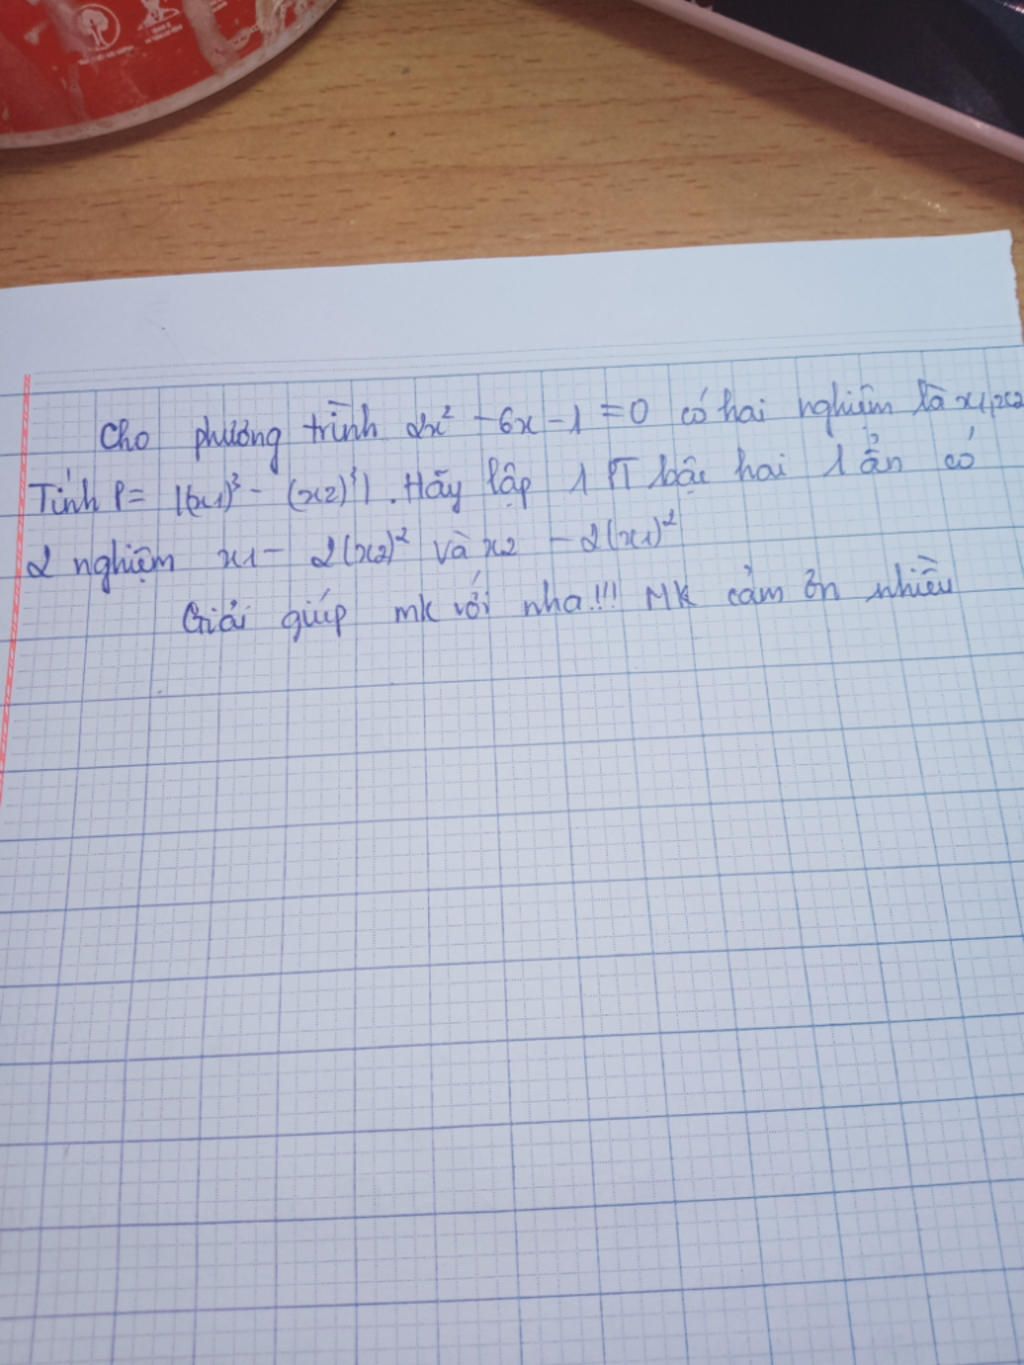 Cho phương trình 2x² - 6x - 1 = 0 có hai nghiệm là x1, x2
Tính P = |(x1)³ - (x2)³|. Hãy lập 1 PT bậc hai 1 ẩn có
2 nghiệm x1 - 2(x2)² và x2 - 2(x1)²
Giải giúp mk với nha!!! MK cảm ơn nhiều